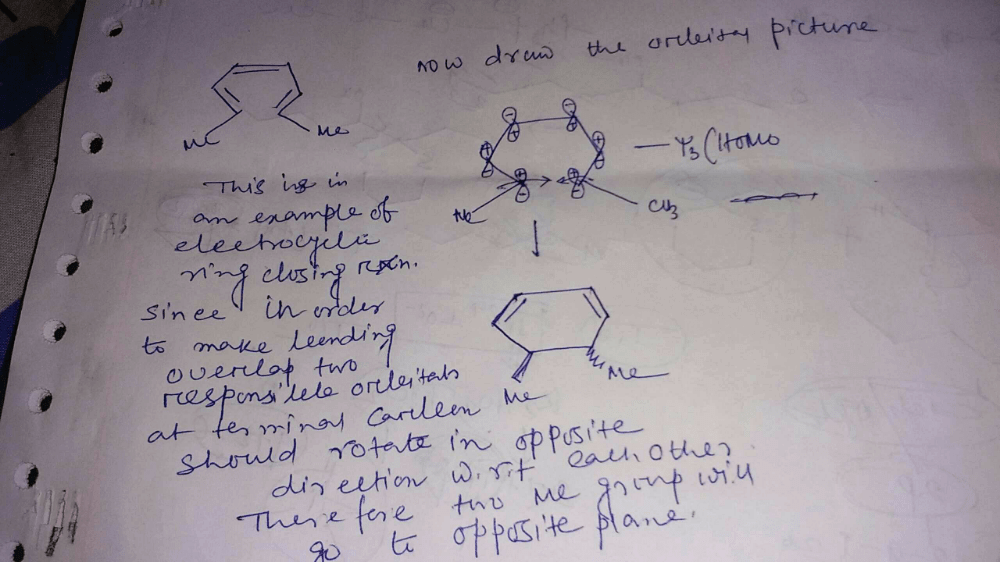 now draw the orbital picture
Me
Me
Ψ3 (HOMO
Me
CH3
This is in
an example of
electrocyclic
ring closing rxn.
since in order
to make bonding
overlap two
responsible orbitals
at terminal carbon
should rotate in opposite
direction w.r.t each other.
Therefore two Me group will
go to opposite plane.
Me
Me